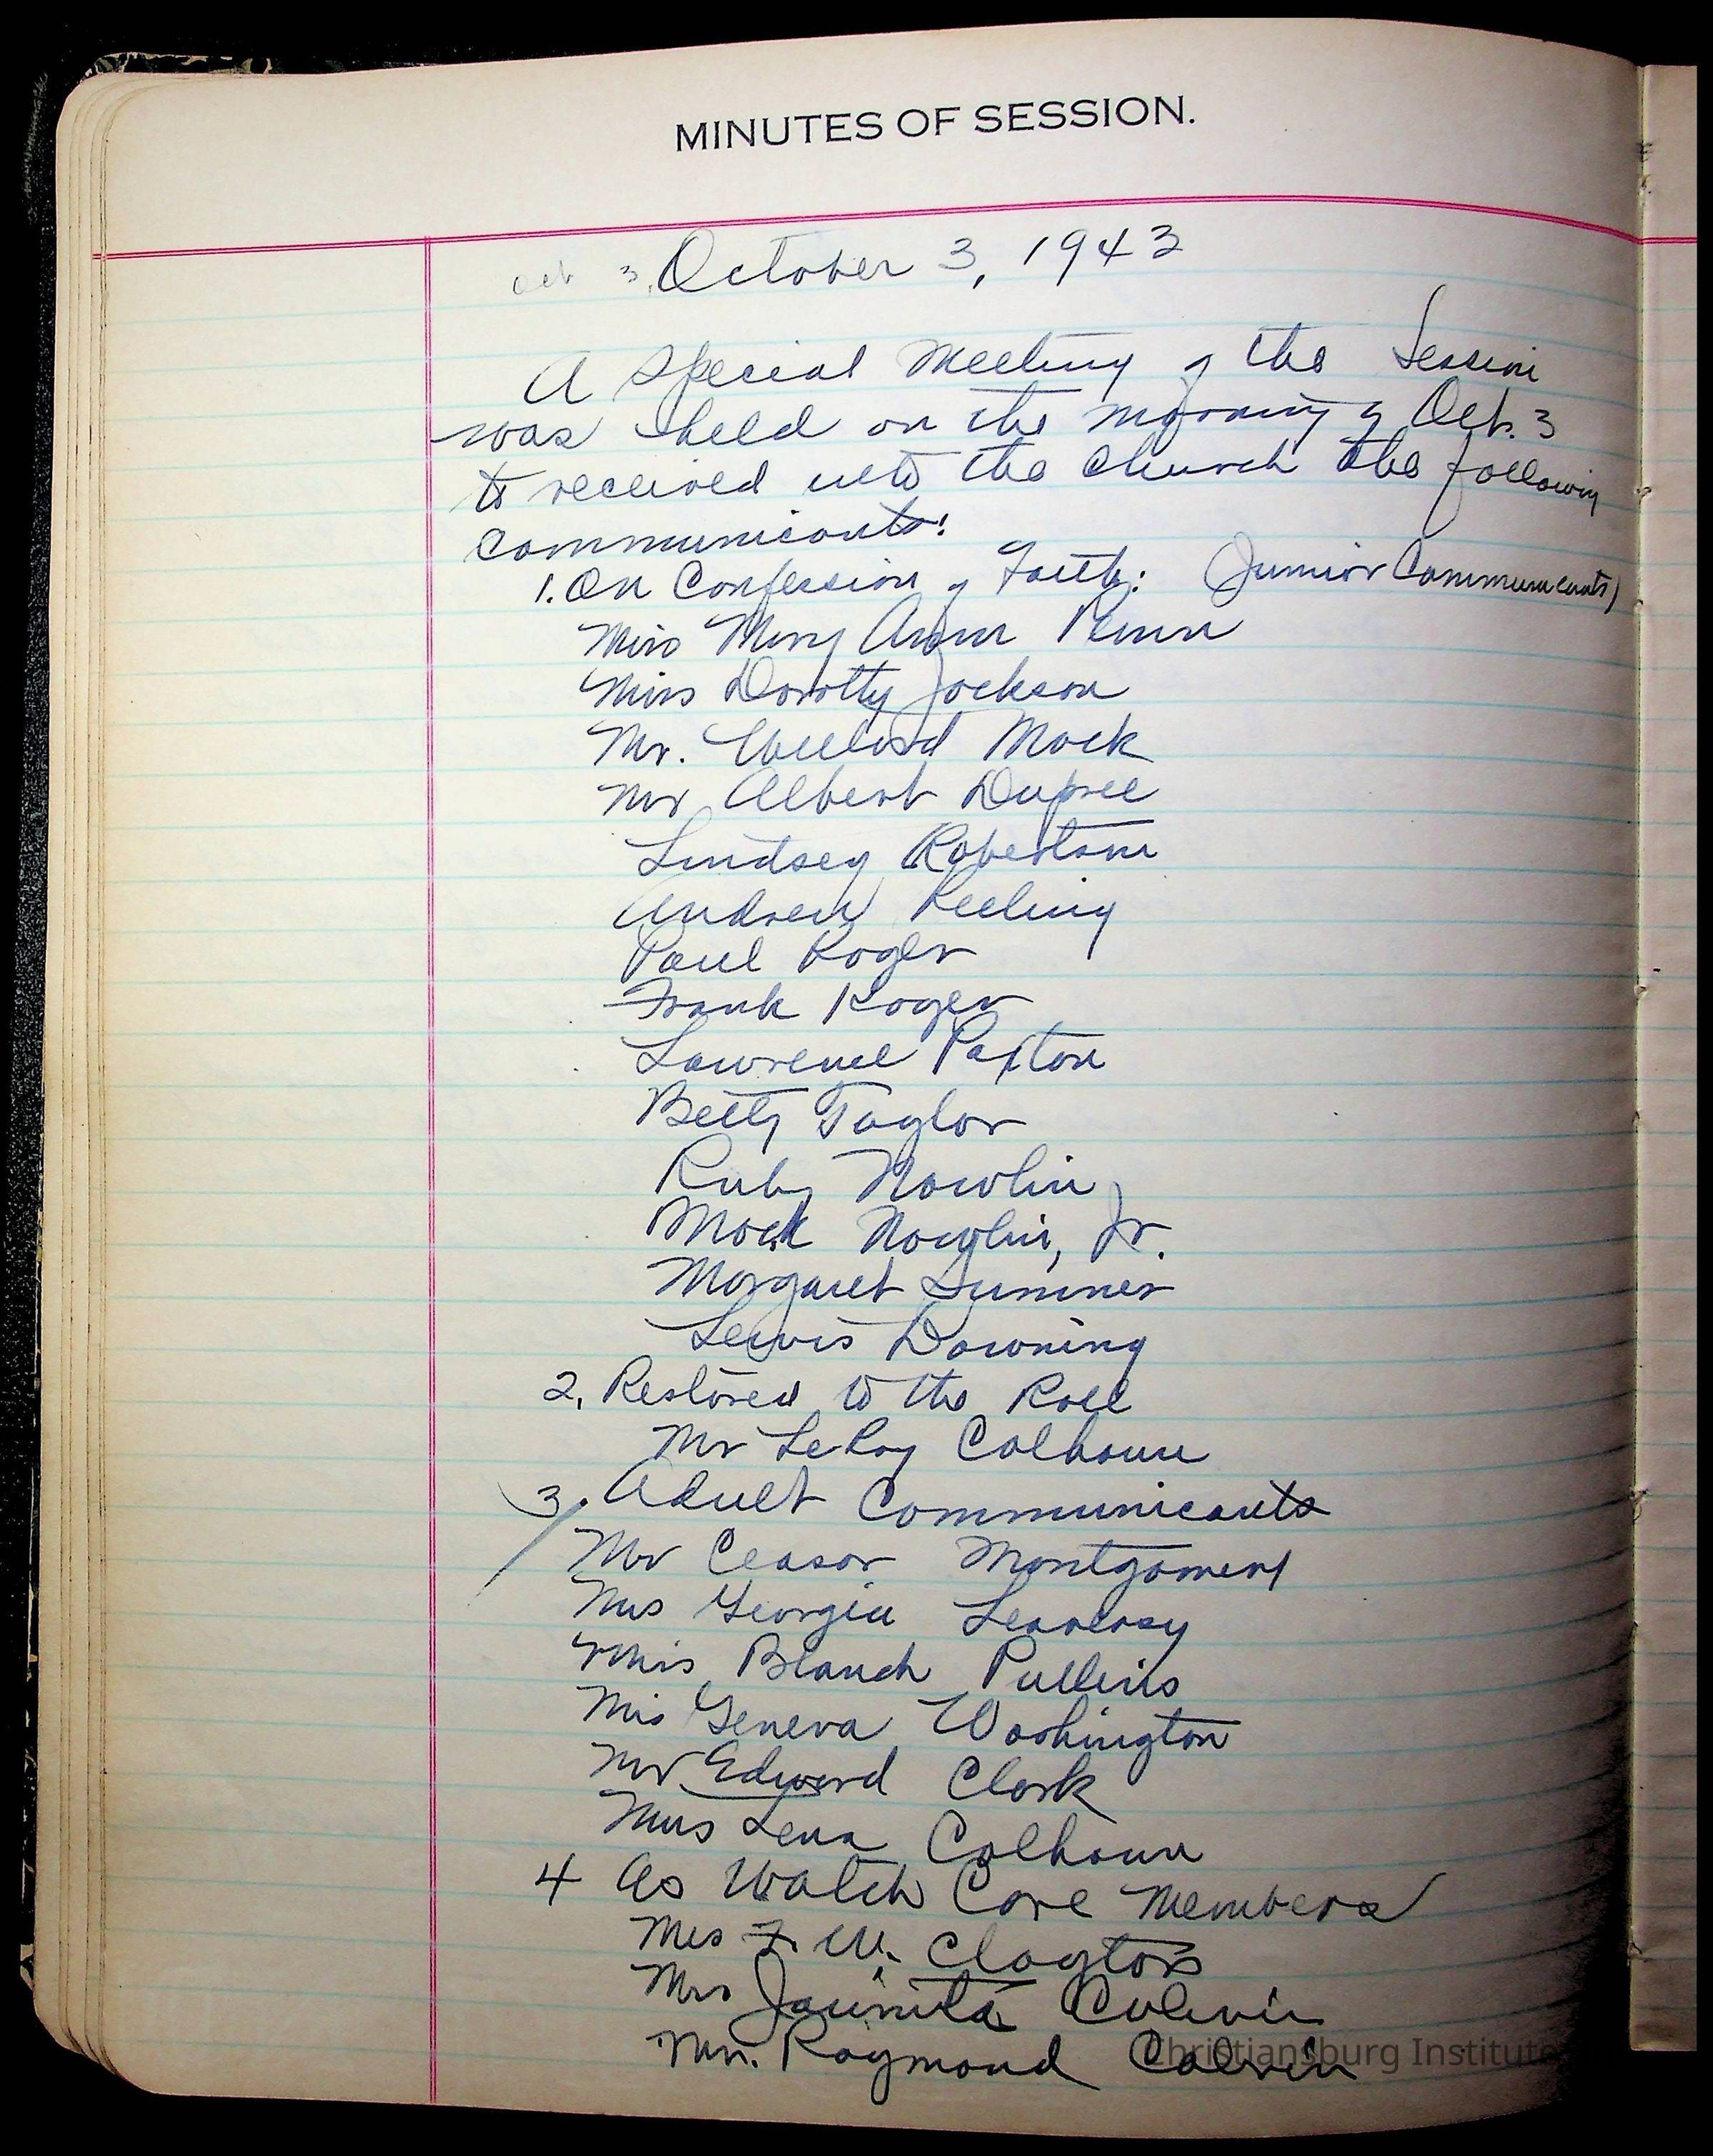 MINUTES OF SESSION.
Oct 3, October 3, 1943
A Special Meeting of the Session
was held on the morning of Oct. 3
to received into the Church the following
Communicants:
1. On Confession of Faith: (Junior Communicants)
Miss Mary Ann Penn
Miss Dorothy Jackson
Mr. Willard Mack
Mr Albert Dupree
Lindsey Robertson
Andrew Reeling
Paul Roger
Frank Roger
Lawrence Paxton
Betty Taylor
Ruby Nowlin
Mack Nowlin, Jr.
Margaret Sumner
Lewis Downing
2. Restored to the Roll
Mr LeRoy Calhoun
3. Adult Communicants
Mr Ceasar Montgomery
Mrs Georgia
Miss Blanch Pullins
Mis Geneva Washington
Mr Edward Clark
Mrs Lena Calhoun
4 As Watch Care Members
Mrs F. W. Claytor
Mrs Jaunita Colvin
Mr. Raymond Calvin
Christiansburg Institute